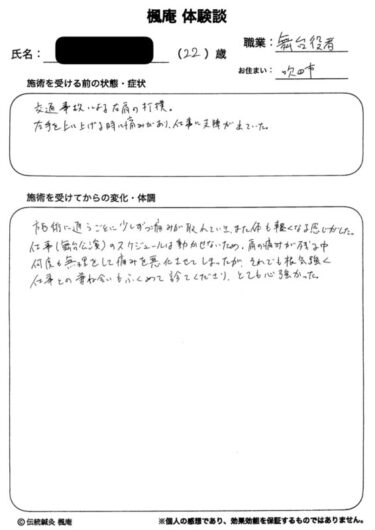 楓庵 体験談
氏名： （22）歳 職業：舞台役者
お住まい：吹田市
施術を受ける前の状態・症状
交通事故による右肩の打撲。
右手を上に上げる時に痛みがあり、仕事に支障が出ていた。
施術を受けてからの変化・体調
施術に通うごとに少しずつ痛みが取れていき、また体も軽くなる感じがした。
仕事（舞台公演）のスケジュールは動かせないため、肩の痛みが残る中
何度も無理をして痛みを悪化させてしまったが、それでも根気強く
仕事との兼ね合いもふくめて診てくださり、とても心強かった。
© 伝統鍼灸 楓庵 ※個人の感想であり、効果効能を保証するものではありません。